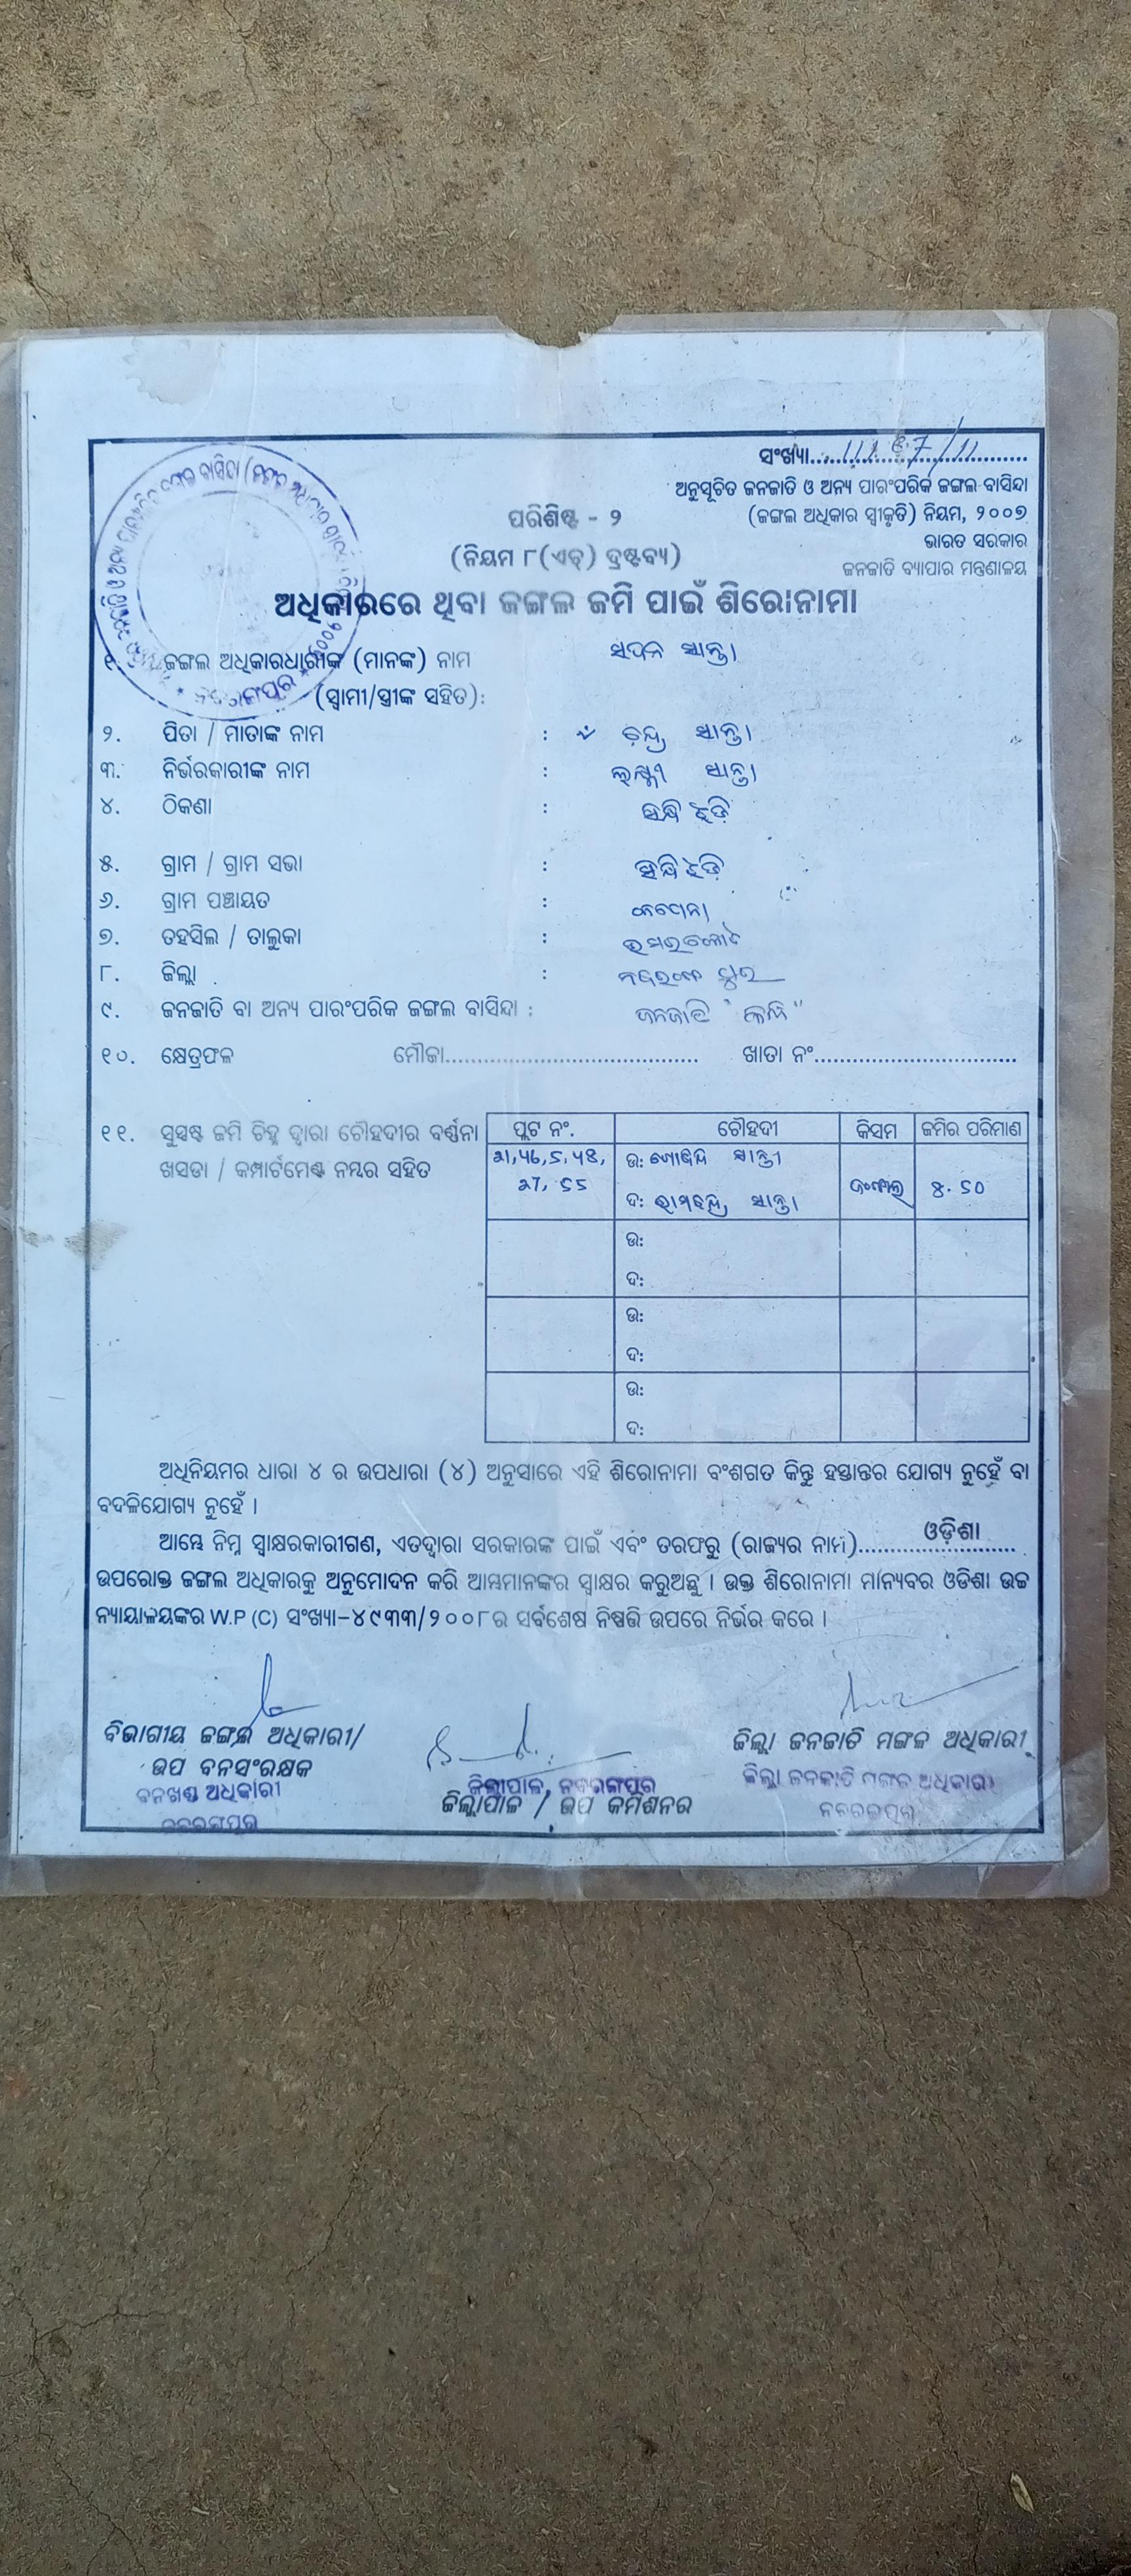 ସଂଖ୍ୟା
ଅନୁସୂଚିତ ଜନଜାତି ଓ ଅନ୍ୟ ପାରଂପରିକ ଜଙ୍ଗଲ ବାସିନ୍ଦା
(ଜଙ୍ଗଲ ଅଧିକାର ସ୍ୱୀକୃତି) ନିୟମ, ୨୦୦୭
ଭାରତ ସରକାର
ଜନଜାତି ବ୍ୟାପାର ମନ୍ତ୍ରଣାଳୟ
ପରିଶିଷ୍ଟ - ୨
(ନିୟମ ୮(ଏଚ୍) ଦ୍ରଷ୍ଟବ୍ୟ)
ଅଧିକାରରେ ଥିବା ଜଙ୍ଗଲ ଜମି ପାଇଁ ଶିରୋନାମା
୧. ଜଙ୍ଗଲ ଅଧିକାରଧାରୀଙ୍କ (ମାନଙ୍କ) ନାମ ସପନ ସାନ୍ତା
(ସ୍ୱାମୀ/ସ୍ତ୍ରୀଙ୍କ ସହିତ):
୨. ପିତା / ମାତାଙ୍କ ନାମ : ଚନ୍ଦ୍ର ସାନ୍ତା
୩. ନିର୍ଭରକାରୀଙ୍କ ନାମ : ଲକ୍ଷ୍ମୀ ସାନ୍ତା
୪. ଠିକଣା :
୫. ଗ୍ରାମ / ଗ୍ରାମ ସଭା :
୬. ଗ୍ରାମ ପଞ୍ଚାୟତ :
୭. ତହସିଲ / ତାଲୁକା : ଉମରକୋଟ
୮. ଜିଲ୍ଲା : ନବରଙ୍ଗପୁର
୯. ଜନଜାତି ବା ଅନ୍ୟ ପାରଂପରିକ ଜଙ୍ଗଲ ବାସିନ୍ଦା : ଜନଜାତି
୧୦. କ୍ଷେତ୍ରଫଳ ମୌଜା ଖାତା ନଂ
୧୧. ସୁସ୍ପଷ୍ଟ ଜମି ଚିହ୍ନ ଦ୍ୱାରା ଚୌହଦୀର ବର୍ଣ୍ଣନା
ଖସଡା / କମ୍ପାର୍ଟମେଣ୍ଟ ନମ୍ବର ସହିତ
ପ୍ଲଟ ନଂ. ଚୌହଦୀ କିସମ ଜମିର ପରିମାଣ
ଉ: ଗୋବିନ୍ଦ ସାନ୍ତା
ଦ: ରାମଚନ୍ଦ୍ର ସାନ୍ତା ଜଂଗଲ
ଉ:
ଦ:
ଉ:
ଦ:
ଉ:
ଦ:
ଅଧିନିୟମର ଧାରା ୪ ର ଉପଧାରା (୪) ଅନୁସାରେ ଏହି ଶିରୋନାମା ବଂଶଗତ କିନ୍ତୁ ହସ୍ତାନ୍ତର ଯୋଗ୍ୟ ନୁହେଁ ବା
ବଦଳିଯୋଗ୍ୟ ନୁହେଁ ।
ଆମ୍ଭେ ନିମ୍ନ ସ୍ୱାକ୍ଷରକାରୀଗଣ, ଏତଦ୍ୱାରା ସରକାରଙ୍କ ପାଇଁ ଏବଂ ତରଫରୁ (ରାଜ୍ୟର ନାମ) ଓଡ଼ିଶା
ଉପରୋକ୍ତ ଜଙ୍ଗଲ ଅଧିକାରକୁ ଅନୁମୋଦନ କରି ଆମ୍ଭମାନଙ୍କର ସ୍ୱାକ୍ଷର କରୁଅଛୁ । ଉକ୍ତ ଶିରୋନାମା ମାନ୍ୟବର ଓଡିଶା ଉଚ୍ଚ
ନ୍ୟାୟାଳୟଙ୍କର W.P (C) ସଂଖ୍ୟା-୪୯୩୩/୨୦୦୮ର ସର୍ବଶେଷ ନିଷ୍ପତ୍ତି ଉପରେ ନିର୍ଭର କରେ ।
ବିଭାଗୀୟ ଜଙ୍ଗଲ ଅଧିକାରୀ/
ଉପ ବନସଂରକ୍ଷକ
ବନଖଣ୍ଡ ଅଧିକାରୀ
ନବରଙ୍ଗପୁର
ଜିଲ୍ଲାପାଳ, ନବରଙ୍ଗପୁର
ଜିଲ୍ଲାପାଳ / ଉପ କମିଶନର
ଜିଲ୍ଲା ଜନଜାତି ମଙ୍ଗଳ ଅଧିକାରୀ
ଜିଲ୍ଲା ଜନଜାତି ମଙ୍ଗଳ ଅଧିକାରୀ
ନବରଙ୍ଗପୁର